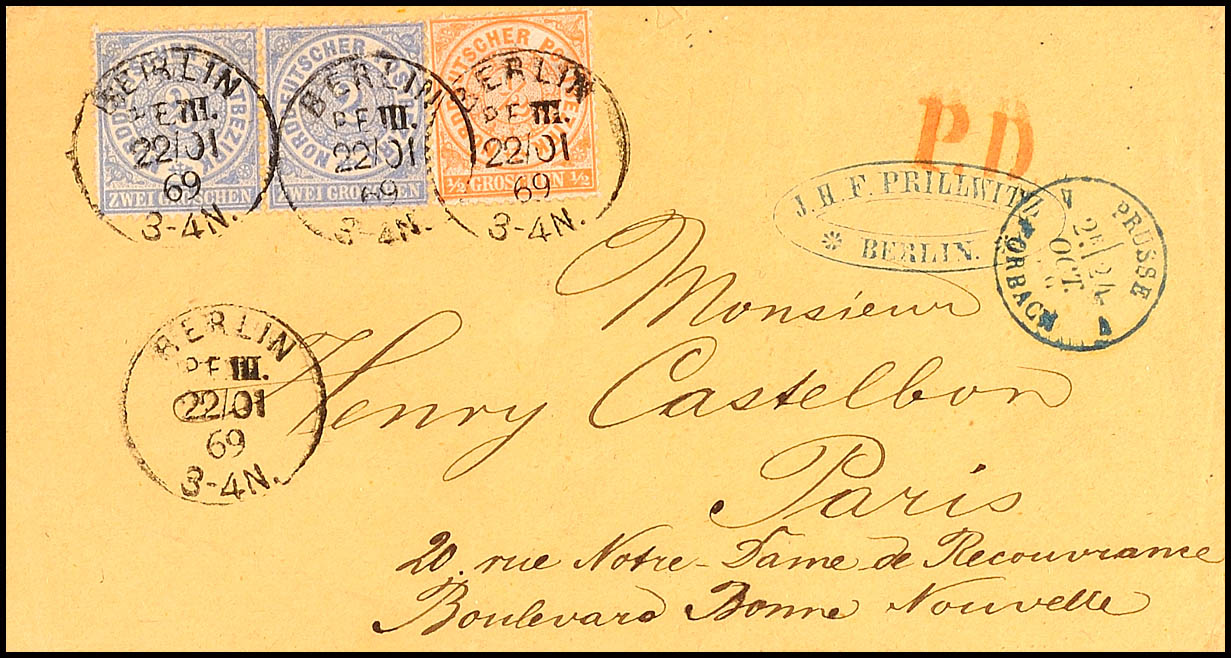 NORDDEUTSCHER POSTBEZIRK
ZWEI GROSCHEN
NORDDEUTSCHER POSTBEZIRK
2
ZWEI GROSCHEN
NORDDEUTSCHER POSTBEZIRK
½
½ GROSCHEN ½
BERLIN
P.E. III.
22/01
69
3-4N.
BERLIN
P.E. III.
22/01
69
3-4N.
BERLIN
P.E. III.
22/01
69
3-4N.
P.D
J. H. F. PRILLWITZ
* BERLIN.
PRUSSE
24
OCT.
FORBACH
BERLIN
P.E. III.
22/01
69
3-4N.
Monsieur
Henry Castelbon
Paris
20. rue Notre-Dame de Recouvrance
Boulevard Bonne Nouvelle